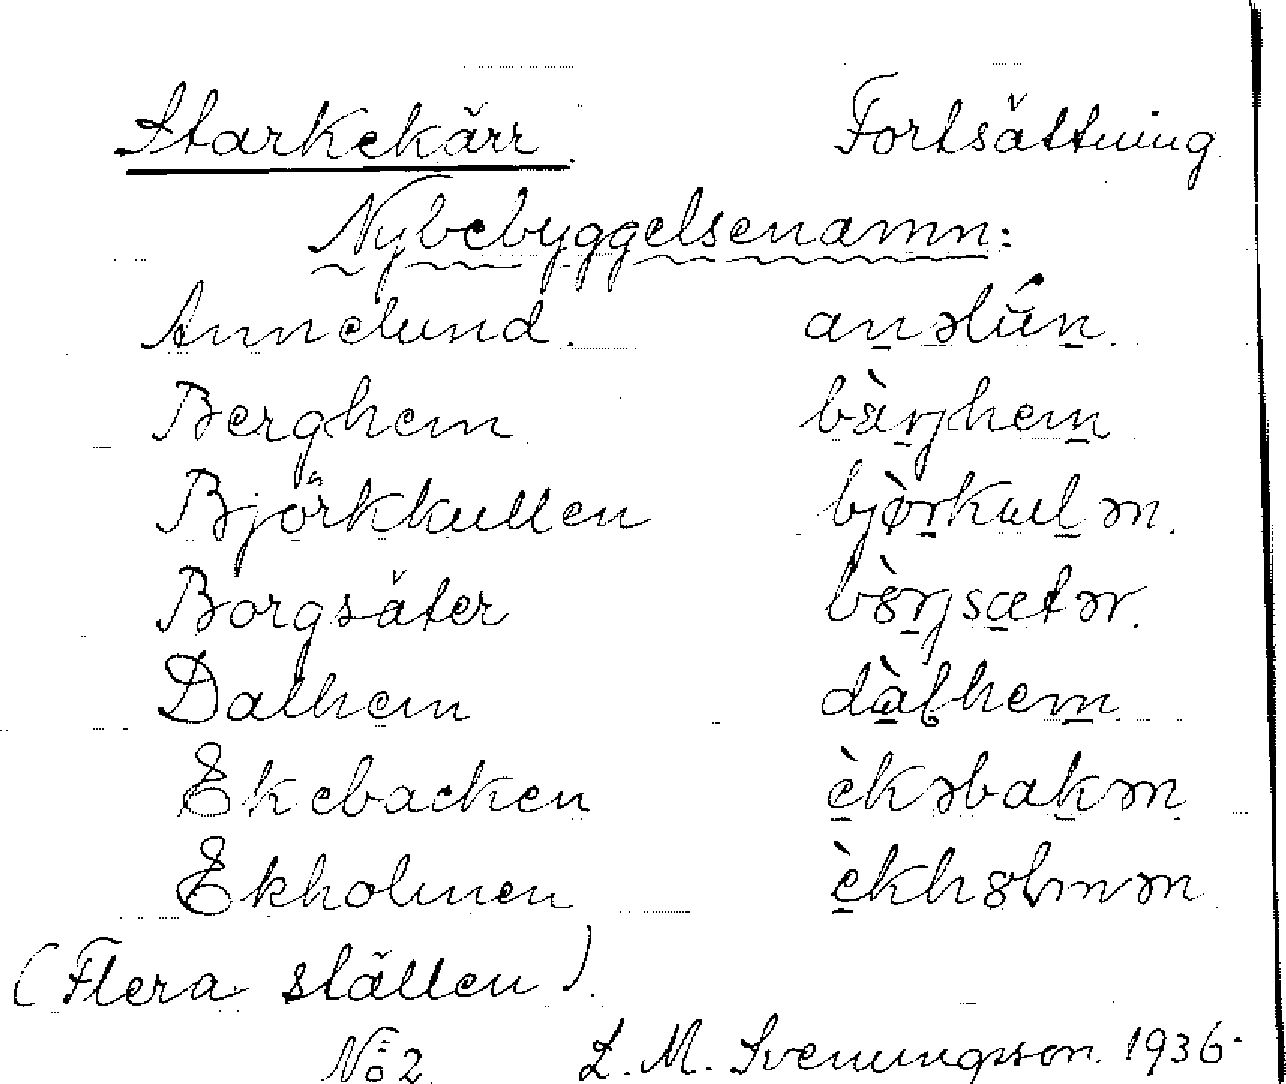 Starkekärr. Fortsättning
Nybebyggelsenamn:
Annelund. an̲əlún̲.
Berghem bæ̀r̲jhem̲
Björkkullen bjø̀r̲kul̲ən.
Borgsäter bòr̲jsæ̲tər.
Dalhem dà̲lhem̲
Ekebacken è̲kəbak̲ən
Ekholmen è̲kholmən
(Flera ställen).
No 2. L. M. Svenungsson. 1936.